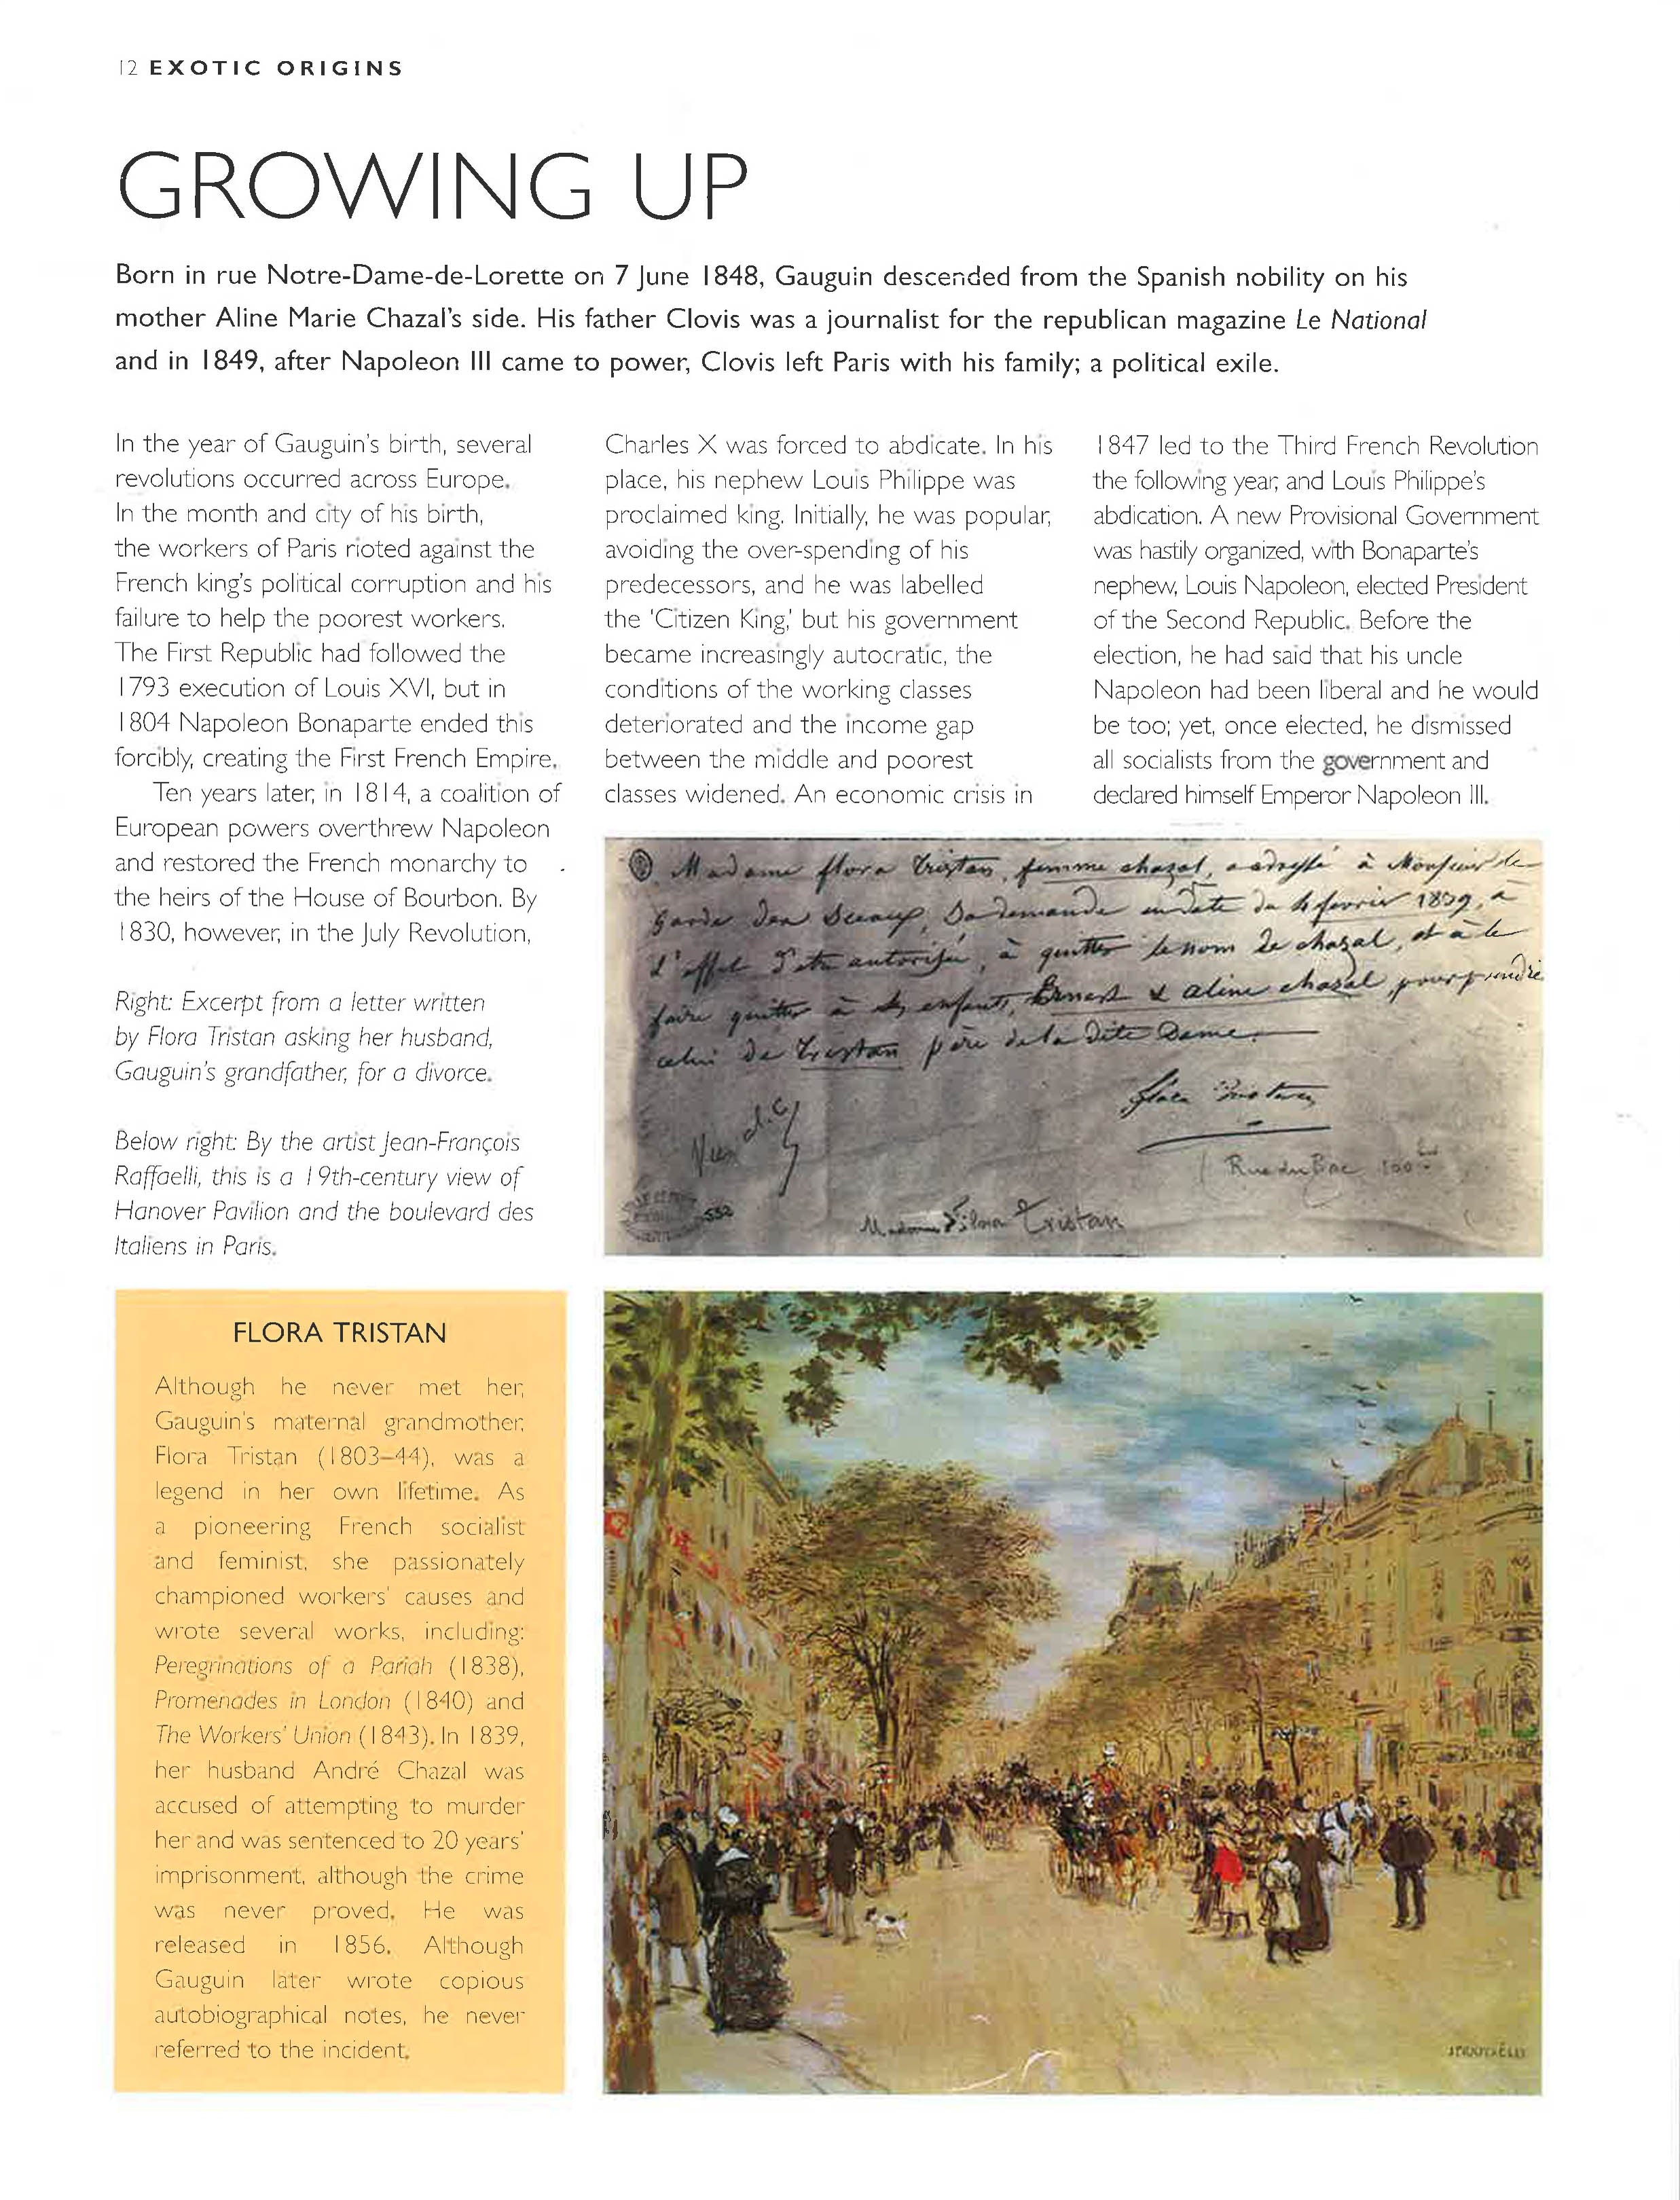 12 EXOTIC ORIGINS
GROWING UP
Born in rue Notre-Dame-de-Lorette on 7 June 1848, Gauguin descended from the Spanish nobility on his
mother Aline Marie Chazal's side. His father Clovis was a journalist for the republican magazine Le National
and in 1849, after Napoleon III came to power, Clovis left Paris with his family; a political exile.
In the year of Gauguin's birth, several
revolutions occurred across Europe.
In the month and city of his birth,
the workers of Paris rioted against the
French king's political corruption and his
failure to help the poorest workers.
The First Republic had followed the
1793 execution of Louis XVI, but in
1804 Napoleon Bonaparte ended this
forcibly, creating the First French Empire.
Ten years later, in 1814, a coalition of
European powers overthrew Napoleon
and restored the French monarchy to
the heirs of the House of Bourbon. By
1830, however, in the July Revolution,
Charles X was forced to abdicate. In his
place, his nephew Louis Philippe was
proclaimed king. Initially, he was popular,
avoiding the over-spending of his
predecessors, and he was labelled
the 'Citizen King,' but his government
became increasingly autocratic, the
conditions of the working classes
deteriorated and the income gap
between the middle and poorest
classes widened. An economic crisis in
1847 led to the Third French Revolution
the following year, and Louis Philippe's
abdication. A new Provisional Government
was hastily organized, with Bonaparte's
nephew, Louis Napoleon, elected President
of the Second Republic. Before the
election, he had said that his uncle
Napoleon had been liberal and he would
be too; yet, once elected, he dismissed
all socialists from the government and
declared himself Emperor Napoleon III.
Right: Excerpt from a letter written
by Flora Tristan asking her husband,
Gauguin's grandfather, for a divorce.
Below right: By the artist Jean-François
Raffaelli, this is a 19th-century view of
Hanover Pavilion and the boulevard des
Italiens in Paris.
Madame flora Tristan, femme chazal, a adressé à Monsieur le
Garde des Sceaux, Sa demande en date du 4 fevrier 1839, à
l'effet d'etre autorisée, à quitter le nom de chazal, et à le
faire quitter à ses enfants, Ernest & aline chazal pour prendre
celui de Tristan père de la dite Dame.
flora Tristan
Rue du Bac 100
552
Madame Flora Tristan
FLORA TRISTAN
Although he never met her,
Gauguin's maternal grandmother,
Flora Tristan (1803–44), was a
legend in her own lifetime. As
a pioneering French socialist
and feminist, she passionately
championed workers' causes and
wrote several works, including:
Peregrinations of a Pariah (1838),
Promenades in London (1840) and
The Workers' Union (1843). In 1839,
her husband André Chazal was
accused of attempting to murder
her and was sentenced to 20 years'
imprisonment, although the crime
was never proved. He was
released in 1856. Although
Gauguin later wrote copious
autobiographical notes, he never
referred to the incident.